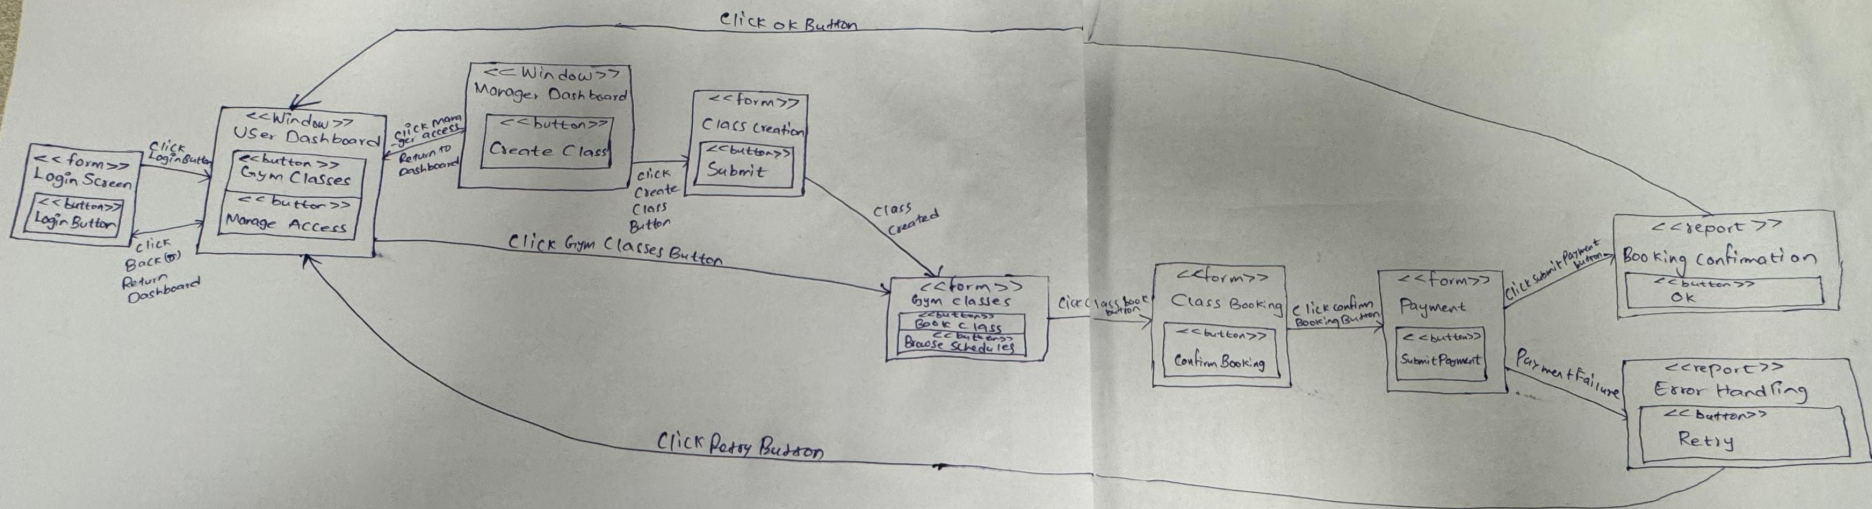 Click OK Button
<<form>>
Login Screen
<<button>>
Login Button
Click
Login Button
Click
Back (or)
Return
Dashboard
<<Window>>
User Dashboard
<<button>>
Gym Classes
<<button>>
Manage Access
Click Mana
-ger access
Return to
Dashboard
<<Window>>
Manager Dashboard
<<button>>
Create Class
Click
Create
Class
Button
<<form>>
Class Creation
<<button>>
Submit
Class
Created
Click Gym Classes Button
<<form>>
Gym classes
<<button>>
Book Class
<<button>>
Browse Schedules
Click Class Book
button
<<form>>
Class Booking
<<button>>
Confirm Booking
Click confirm
Booking Button
<<form>>
Payment
<<button>>
Submit Payment
Click Submit Payment
button
<<report>>
Booking Confirmation
<<button>>
OK
Payment Failure
<<report>>
Error Handling
<<button>>
Retry
Click Retry Button